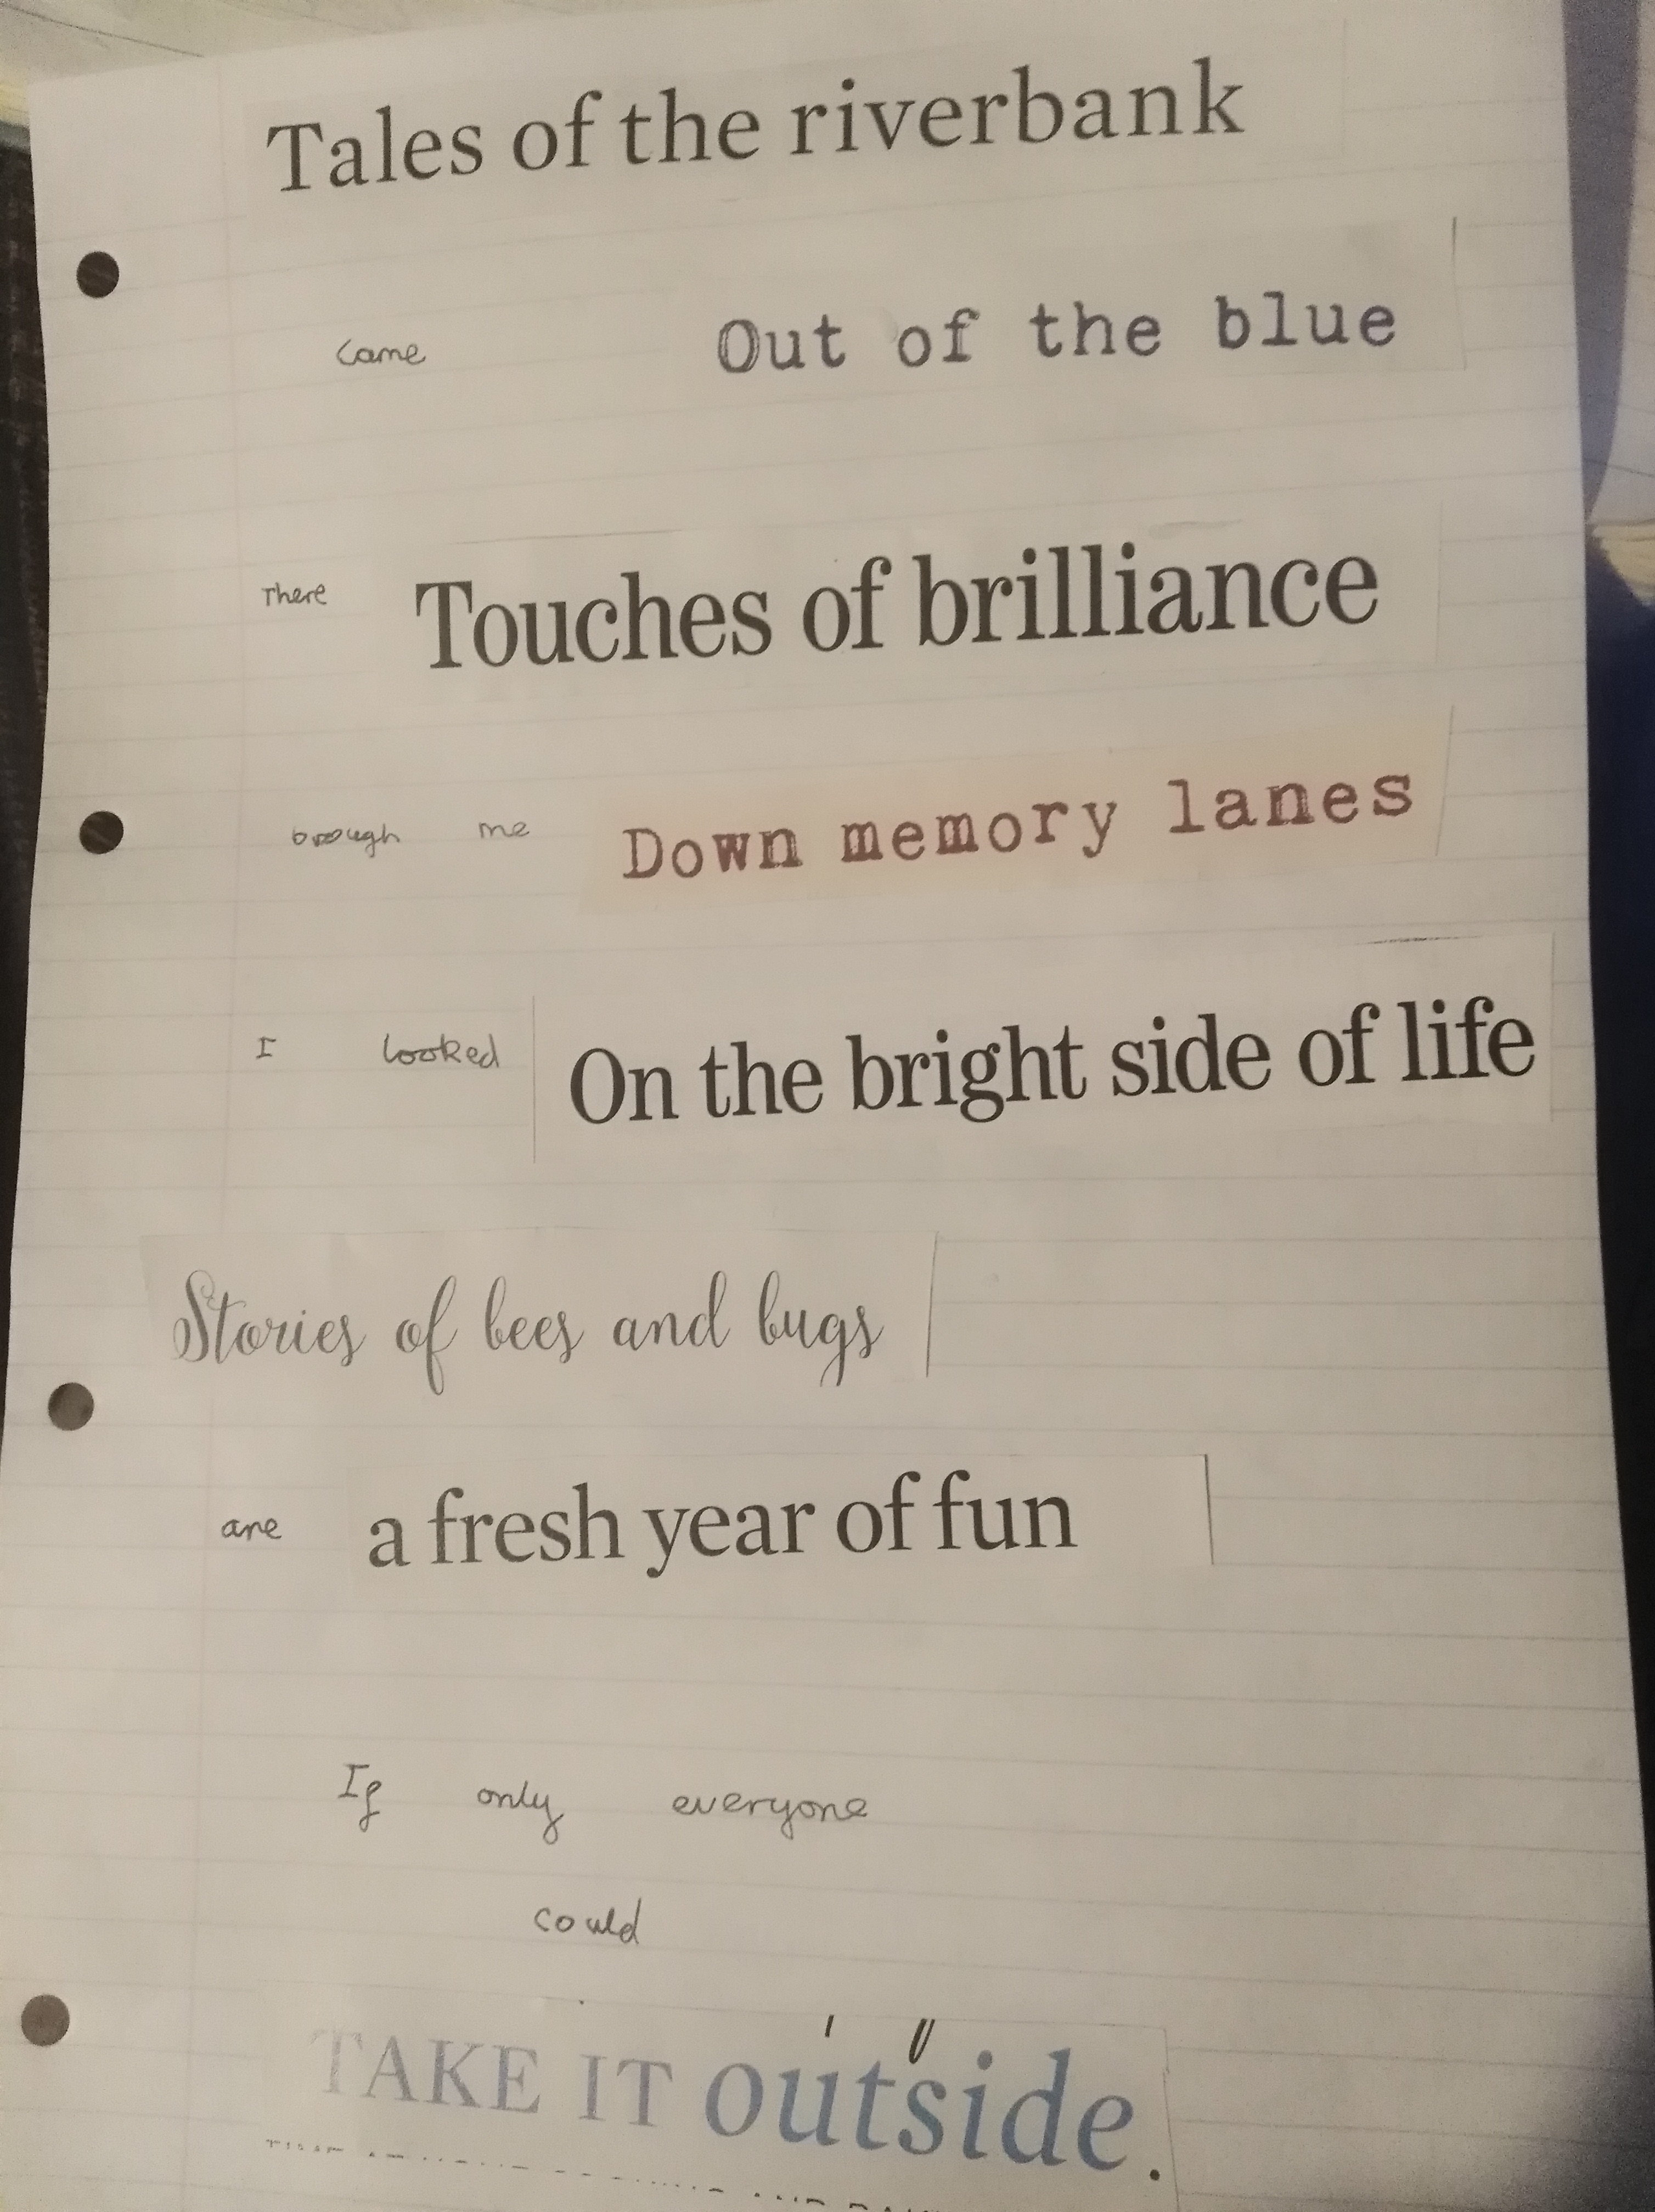 Tales of the riverbank
came Out of the blue
There Touches of brilliance
brough me Down memory lanes
I looked On the bright side of life
Stories of bees and bugs
are a fresh year of fun
If only everyone
could
TAKE IT outside.